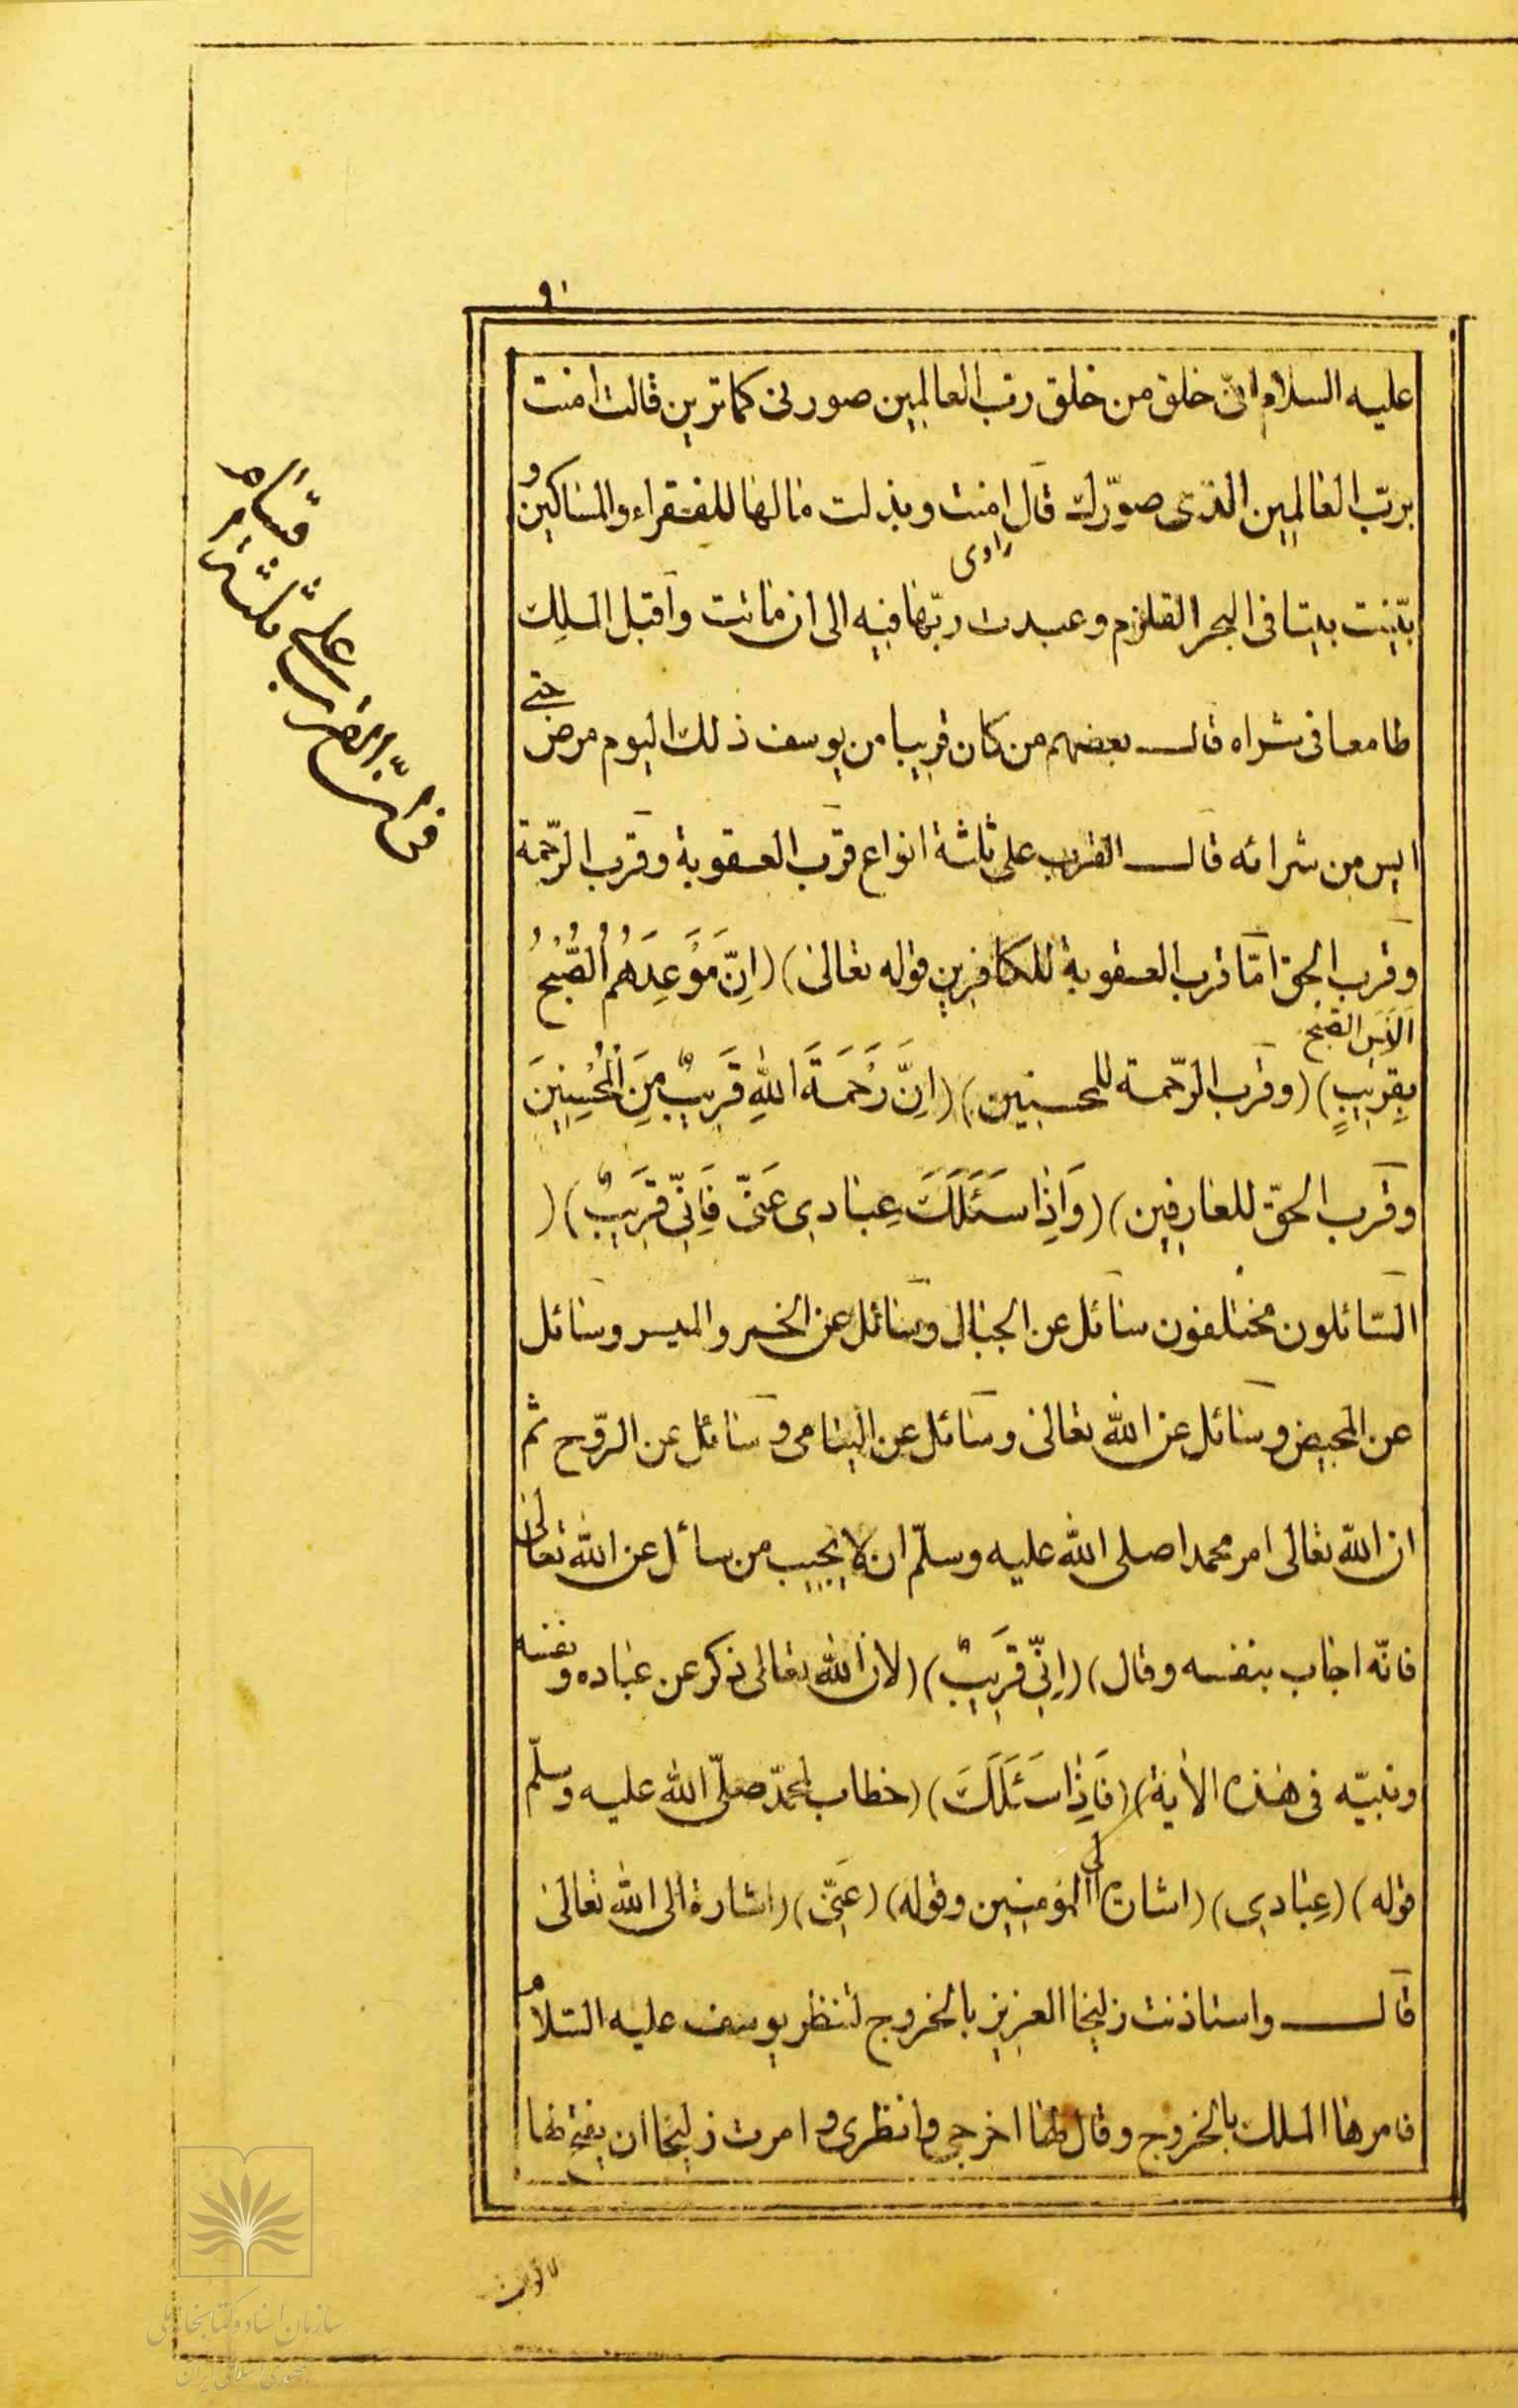 ٩٠
عليه السلام انّى خلق من خلق ربّ العالمين صورنى كما ترين قالت امنت
بربّ العالمين الذى صوّرك قال امنت و بذلت مالها للفقراء والمساكين و
بنيت بيتا فى البحر القلزم و عبدت ربّها فيه الى ان ماتت و اقبل الملك
راوى
طامعا فى شراه قال بعضهم من كان قريبا من يوسف ذلك اليوم مرض حتى
ايس من شرائه قال القرب على ثلثة انواع قرب العقوبة و قرب الرّحمة
و قرب الحق امّا قرب العقوبة للكافرين قوله تعالى) (اِنَّ مَوْعِدَهُمُ الصُّبْحُ
اَلَيسَ الصّبح
بِقَرِيبٍ) (و قرب الرّحمة للمحسنين) (اِنَّ رَحْمَةَ اللهِ قَرِيبٌ مِنَ الْمُحْسِنِينَ
و قرب الحقّ للعارفين) (وَاِذَا سَئَلَكَ عِبادِى عَنّى فَاِنّى قَرِيبٌ) (
السّائلون مختلفون سائل عن الجبال و سائل عن الخمر و الميسر و سائل
عن المحيض و سائل عن الله تعالى و سائل عن اليتامى و سائل عن الرّوح ثم
ان الله تعالى امر محمدا صلى الله عليه وسلّم ان لا يجيب من سأل عن الله تعالى
فانّه اجاب بنفسه و قال) (اِنّى قَرِيبٌ) (لان الله تعالى ذكر عن عباده و نفسه
و نبيّه فى هذه الاية) (فَاِذَا سَئَلَكَ) (خطاب لمحمّد صلّى الله عليه و سلّم
قوله) (عِبادِى) (اشارة الى المؤمنين و قوله) (عَنّى) (اشارة الى الله تعالى
قال و استاذنت زليخا العزيز بالخروج لتنظر يوسف عليه السّلام
فامرها الملك بالخروج و قال لها اخرجى و انظرى و امرت زليخا ان
سازمان اسناد و کتابخانه ملی
جمهوری اسلامی ایران